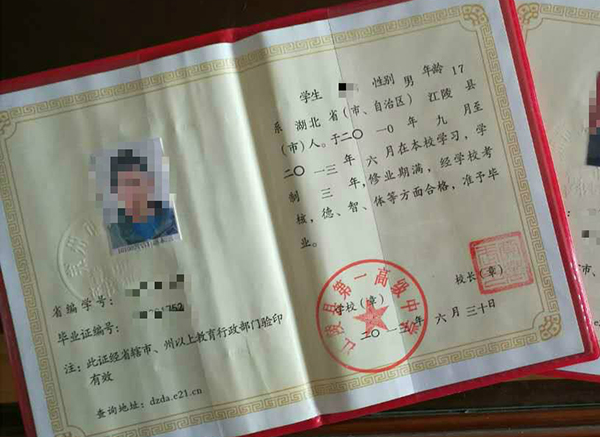 省编学号:
毕业证编号:
注:此证经省辖市、州以上教育行政部门验印
有效
查询地址:dzda.e21.cn
学生 性别 男 年龄 17
系 湖北 省(市、自治区) 江陵 县
(市)人。于二〇一〇年 九 月至
二〇一三年 六 月在本校学习,学
制 三 年,修业期满,经学校考
核,德、智、体等方面合格,准予毕
业。
校长(章)
学校(章)
江陵县第一高级中学
二〇一三年 六 月 三十日